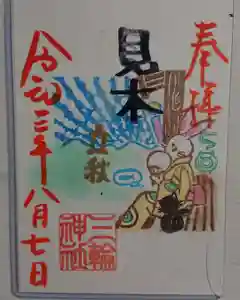 奉拝
見本
立秋
令和三年八月七日
三輪
神社